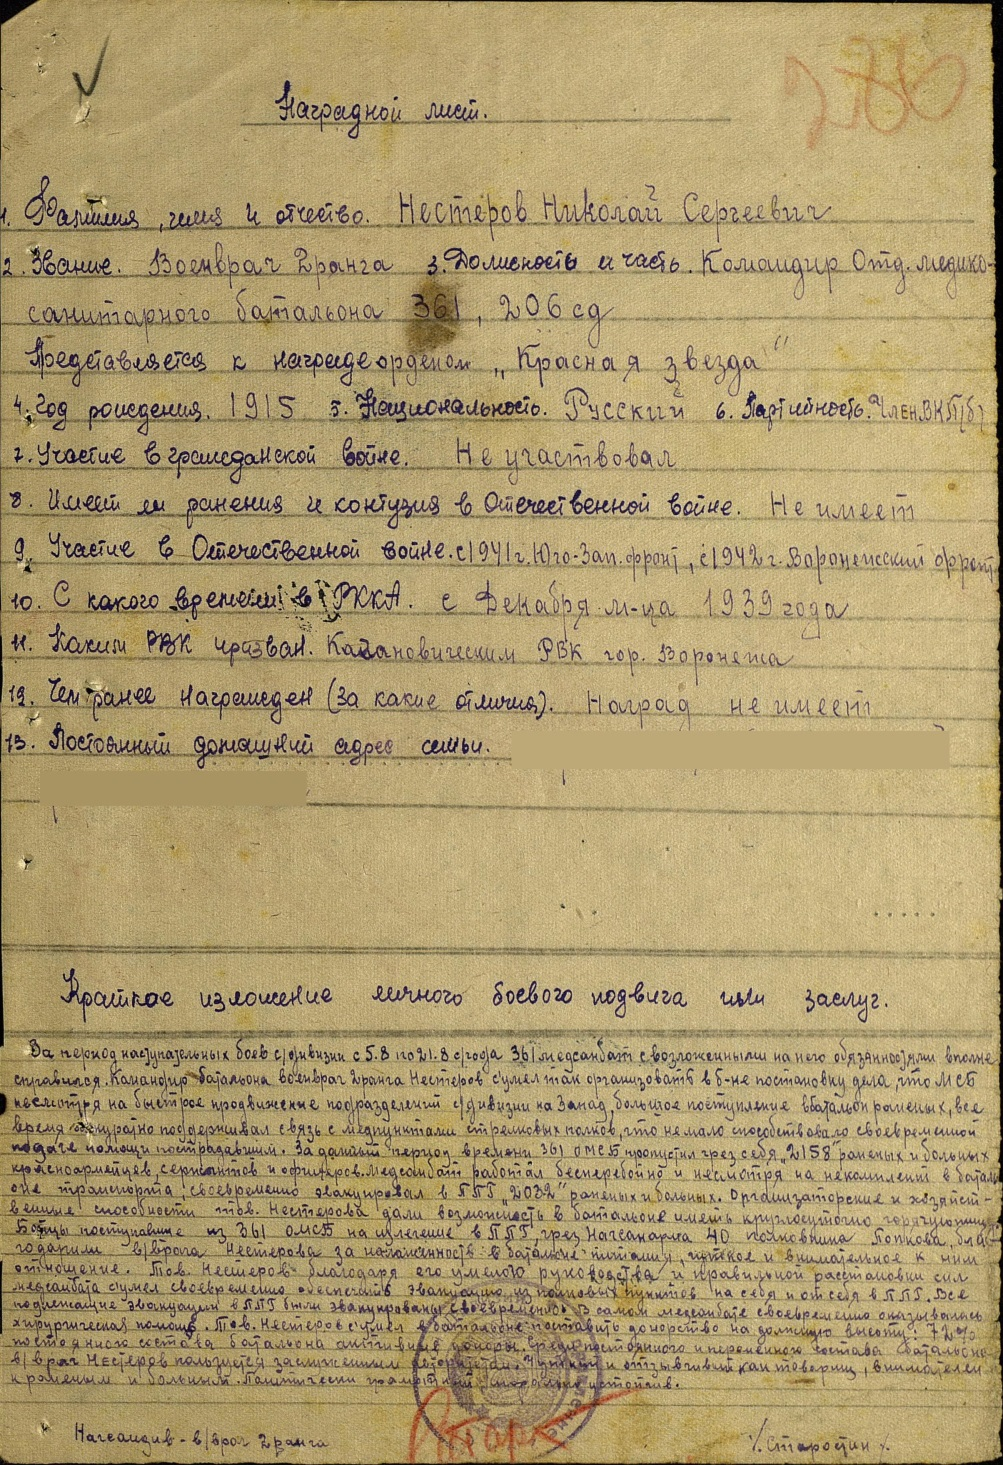 Наградной лист.
1. Фамилия, имя и отчество. Нестеров Николай Сергеевич
2. Звание. Военврач 2ранга 3. Должность и часть. Командир Отд. медико-
санитарного батальона 361, 206 сд
Представляется к награде орденом „Красная звезда“
4. Год рождения. 1915 5. Национальность. Русский 6. Партийность. Член ВКП(б)
7. Участие в гражданской войне. Не участвовал
8. Имеет ли ранения и контузия в Отечественной войне. Не имеет
9. Участие в Отечественной войне. с 1941 г. Юго-Зап. фронт, с 1942 г. Воронежский фронт
10. С какого времени в РККА. с Декабря м-ца 1939 года
11. Каким РВК призван. Кагановическим РВК гор. Воронежа
12. Чем ранее награжден (за какие отличия). Наград не имеет
13. Постоянный домашний адрес семьи.
Краткое изложение личного боевого подвига или заслуг.
За период наступательных боев с/дивизии с 5.8 по 21.8 с/года 361 медсанбат с возложенными на него обязанностями вполне
справился. Командир батальона военврач 2ранга Нестеров сумел так организовать в б-не постановку дела, что МСБ
несмотря на быстрое продвижение подразделений с/дивизии на Запад, большое поступление в батальон раненых, все
время аккуратно поддерживал связь с медпунктами стрелковых полков, что немало способствовало своевременной
подаче помощи пострадавшим. За данный период времени 361 ОМСБ пропустил чрез себя „2158“ раненых и больных
красноармейцев, сержантов и офицеров. Медсанбат работал бесперебойно и несмотря на некомплект в баталь
оне транспорта, своевременно эвакуировал в ППГ „2032“ раненых и больных. Организаторские и хозяйст-
венные способности тов. Нестерова дали возможность в батальоне иметь круглосуточно горячую пищу.
Бойцы поступавшие из 361 ОМСБ на излечение в ППГ, чрез Начсанарма 40 полковника Попкова, бла-
годарили в/врача Нестерова за налаженность в батальоне питания, чуткое и внимательное к ним
отношение. Тов. Нестеров благодаря его умелому руководства и правильной расстановки сил
медсанбата сумел своевременно обеспечить эвакуацию из полковых пунктов на себя и от себя в ППГ. Все
подлежащие эвакуации в ППГ были эвакуированы своевременно. В самом медсанбате своевременно оказывалась
хирургическая помощь. Тов. Нестеров сумел в батальоне поставить донорство на должную высоту: 72%
постоянного состава батальона активные доноры. Среди постоянного и переменного состава батальона
в/врач Нестеров пользуется заслуженным авторитетом. Чуткий и отзывчивый как товарищ, внимателен
к раненым и больным. Политически грамотный, морально устойчив.
Начсандив - в/врач 2 ранга /. Старостин /.